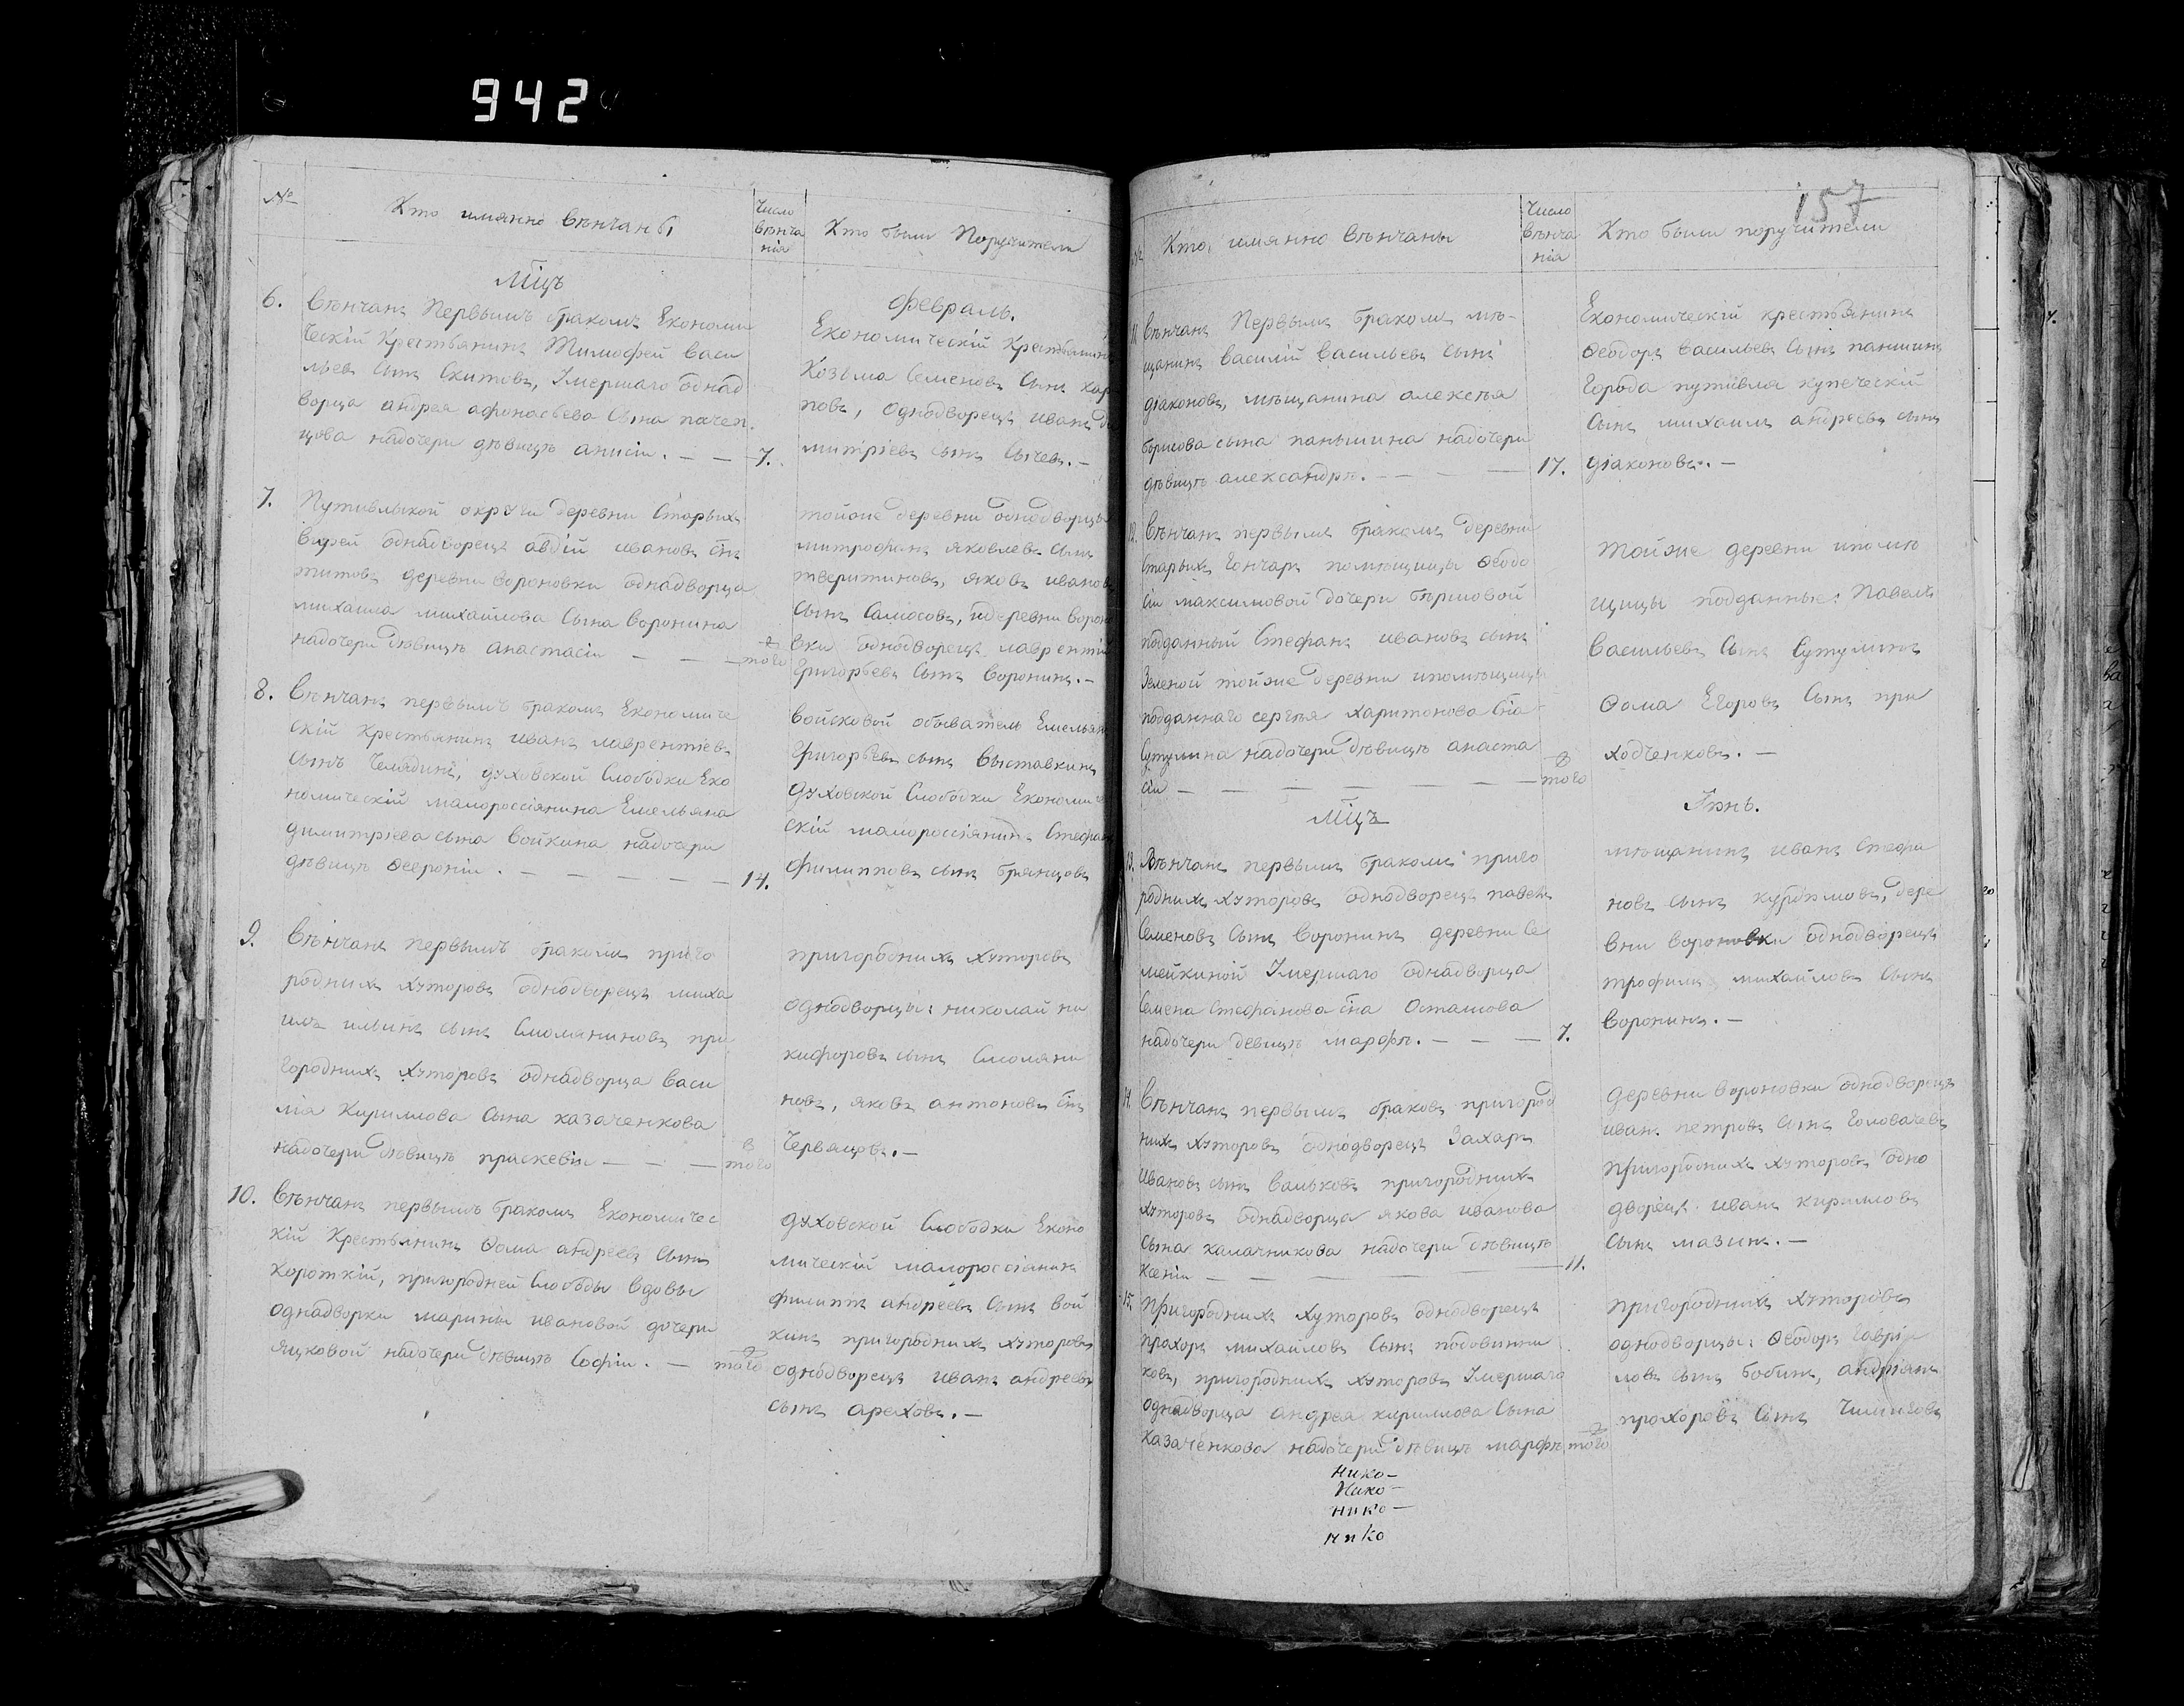 942
№
Кто имянно вѣнчаны
Число
вѣнча
нія
Кто были Поручители
Мцъ
февраль.
6. Вѣнчанъ Первымъ бракомъ Економи
ческій крестьянинъ Тимофей васи
льевъ сынъ Скитовъ, Умершаго однад
ворца андрея афонасьева сына
надочери дѣвицѣ анисіи. — — 7.
Економическій крестьянинъ
Козьма Семеновъ сынъ кар
повъ, однодворецъ иванъ ди
митріевъ сынъ Сычевъ. —
7. Путивльской округи деревни Старыхъ
однадворецъ авдій ивановъ снъ
титовъ деревни вороновки однадворца
михаила михайлова сына воронина
надочери дѣвицѣ анастасіи — — того
тойже деревни однодворцы
митрофанъ яковлевъ сынъ
тверитиновъ, яковъ ивановъ
сынъ Самосовъ, идеревни вороно
вки однодворецъ лаврентій
григорьевъ сынъ воронинъ. —
8. Вѣнчанъ первымъ бракомъ Економиче
скій крестьянинъ иванъ лаврентіевъ
сынъ Челядинъ, духовской Слободки Еко
номическій малороссіянина Емельяна
димитріева сына войкина надочери
дѣвицѣ Ѳевроніи. — — — — — 14.
войсковой обыватель Емельянъ
григорьевъ сынъ выставкинъ
духовской Слободки Економиче
скій малороссіянинъ Стефанъ
филипповъ сынъ брянцовъ
9. Вѣнчанъ первымъ бракомъ приго
родныхъ хуторовъ однодворецъ миха
илъ ильинъ сынъ Смоляниновъ при
городныхъ хуторовъ однадворца васи
лія Кириллова сына казаченкова
надочери дѣвицѣ праскевіи — — — того
пригородныхъ хуторовъ
однодворцы: николай ни
кифоровъ сынъ Смоляни
новъ, яковъ антоновъ снъ
Червяцовъ. —
10. Вѣнчанъ первымъ бракомъ Економичес
кій Крестьянинъ Ѳома андреевъ сынъ
Короткій, пригородней Слободы вдовы
однадворки марины ивановой дочери
Яцковой надочери дѣвицѣ Софіи. — того
духовской Слободки Еконо
мическій малороссіянинъ
филиппъ андреевъ сынъ вой
кинъ пригородныхъ хуторовъ
однодворецъ иванъ андреевъ
сынъ ареховъ. —
157
Кто имянно вѣнчаны
Число
вѣнча
нія
Кто были поручители
11 Вѣнчанъ Первымъ бракомъ мѣ-
щанинъ василій васильевъ сынъ
діаконовъ, мѣщанина алексѣя
борисова сына паньшина надочери
дѣвицѣ александрѣ. — — — 17.
Економическій крестьянинъ
Ѳеодоръ васильевъ сынъ паншинъ
Города путивля купеческій
сынъ михаилъ андреевъ сынъ
діаконовъ. —
12. Вѣнчанъ первымъ бракомъ деревни
Старыхъ Гончаръ помѣщицы Ѳеодо
сіи максимовой дочери бѣрловой
подданный Стефанъ ивановъ сынъ
Зеленой тойже деревни ипомѣщицы
подданнаго сергѣя харитонова сна
Сутулина надочери дѣвицѣ анаста
сіи — — — — — — того
тойже деревни ипомѣ
щицы подданные: Павелъ
Васильевъ сынъ Сутулинъ
Ѳома Егоровъ сынъ при
ходченковъ. —
Мцъ
Іюнь.
13. Вѣнчанъ первымъ бракомъ приго
родныхъ хуторовъ однодворецъ павелъ
Семеновъ сынъ воронинъ деревни Се
мейкиной Умершаго однадворца
Семена Стефанова сна Осташова
надочери девицѣ марфѣ. — — — 7.
мѣщанинъ иванъ Стефа
новъ сынъ курбимовъ, дере
вни вороновки однодворецъ
трофимъ михайловъ сынъ
воронинъ. —
14. Вѣнчанъ первымъ бракомъ пригород
ныхъ хуторовъ однодворецъ Захаръ
ивановъ сынъ вальковъ пригородныхъ
хуторовъ однадворца якова иванова
сына калачникова надочери дѣвицѣ
Ксеніи — — — 11.
деревни вороновки однодворецъ
иванъ петровъ сынъ Головачевъ
пригородныхъ хуторовъ одно
дворецъ иванъ кирилловъ
сынъ мазинъ. —
15. Пригородныхъ хуторовъ однодворецъ
прохоръ михайловъ сынъ половинни
ковъ, пригородныхъ хуторовъ Умершаго
однадворца андрея кириллова сына
Казаченкова надочери дѣвицѣ марфѣ того
пригородныхъ хуторовъ
однодворцы: Ѳеодоръ гаврі
ловъ сынъ бобинъ, андріянъ
прохоровъ сынъ
Нико—
Нико—
нико—
нико